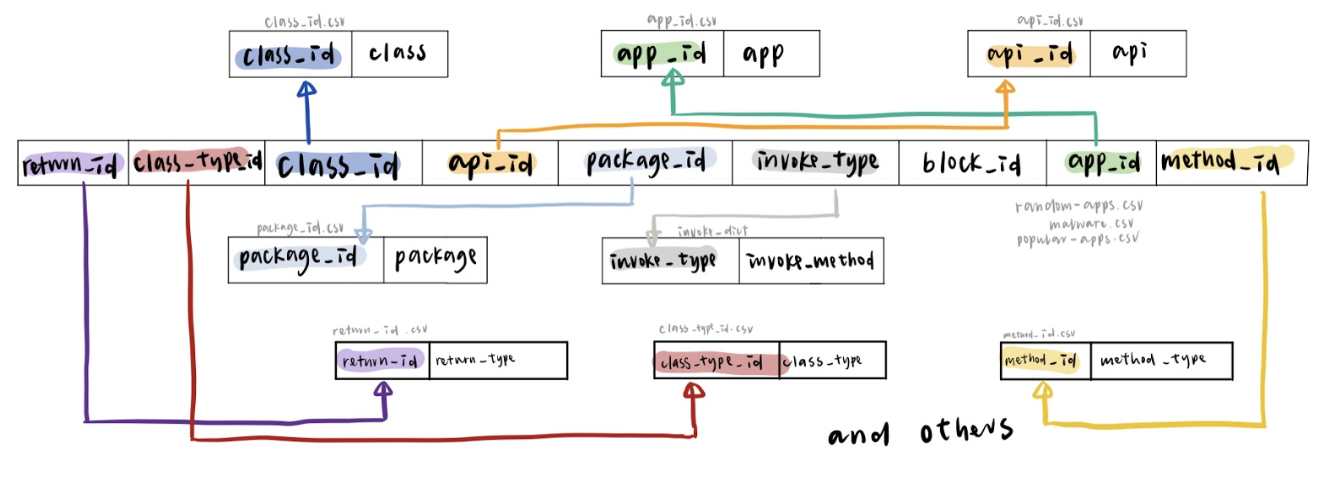 class_id.csv
class_id class
app_id.csv
app_id app
api_id.csv
api_id api
return_id class_type_id class_id api_id package_id invoke_type block_id app_id method_id
random-apps.csv
malware.csv
popular-apps.csv
package_id.csv
package_id package
invoke_dict
invoke_type invoke_method
return_id.csv
return_id return_type
class_type_id.csv
class_type_id class_type
method_id.csv
method_id method_type
and others